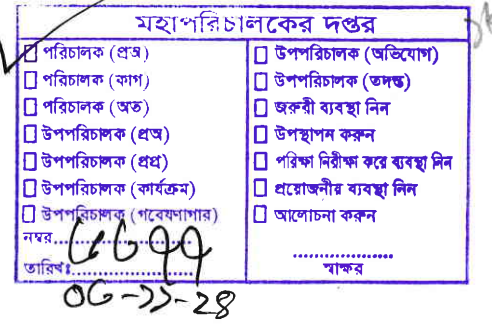 মহাপরিচালকের দপ্তর
পরিচালক (প্রঅ)
পরিচালক (কাগ)
পরিচালক (অত)
উপপরিচালক (প্রঅ)
উপপরিচালক (প্রপ্র)
উপপরিচালক (কার্যক্রম)
উপপরিচালক (গবেষণাগার)
নম্বর
তারিখঃ ০৬-১১-২৪
উপপরিচালক (অভিযোগ)
উপপরিচালক (তদন্ত)
জরুরী ব্যবস্থা নিন
উপস্থাপন করুন
পরিক্ষা নিরীক্ষা করে ব্যবস্থা নিন
প্রয়োজনীয় ব্যবস্থা নিন
আলোচনা করুন
স্বাক্ষর